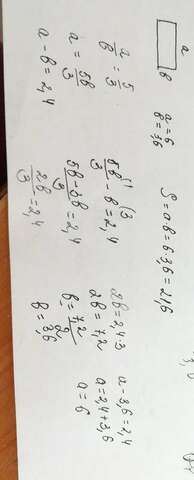 a
в
a=6
в=3,6
S=a·в=6·3,6=21,6
a/в=5/3
a=5в/3
a-в=2,4
5в/3-в=2,4
5в-3в/3=2,4
2в/3=2,4
2в=2,4·3
2в=7,2
в=7,2/2
в=3,6
a-3,6=2,4
a=2,4+3,6
a=6